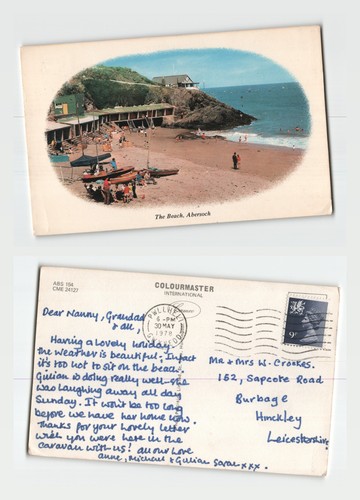 The Beach, Abersoch
ABS 104
CME 24127
COLOURMASTER
INTERNATIONAL
PWLLHELI
6 - PM
30 MAY
1978
9P
Dear Nanny, Grandad
& all,
Having a lovely holiday.
the weather is beautiful; Infact
it's too hot to sit on the beach.
Gillian is doing really well - she
was laughing away all day
Sunday. It won't be too long
before we have her home now.
Thanks for your lovely letter
wish you were here in the
caravan with us! all our love
Anne, Michael & Gillian Sarah xxx.
Mr & Mrs W. Crookes.
152, Sapcote Road
Burbage
Hinckley
Leicestershire